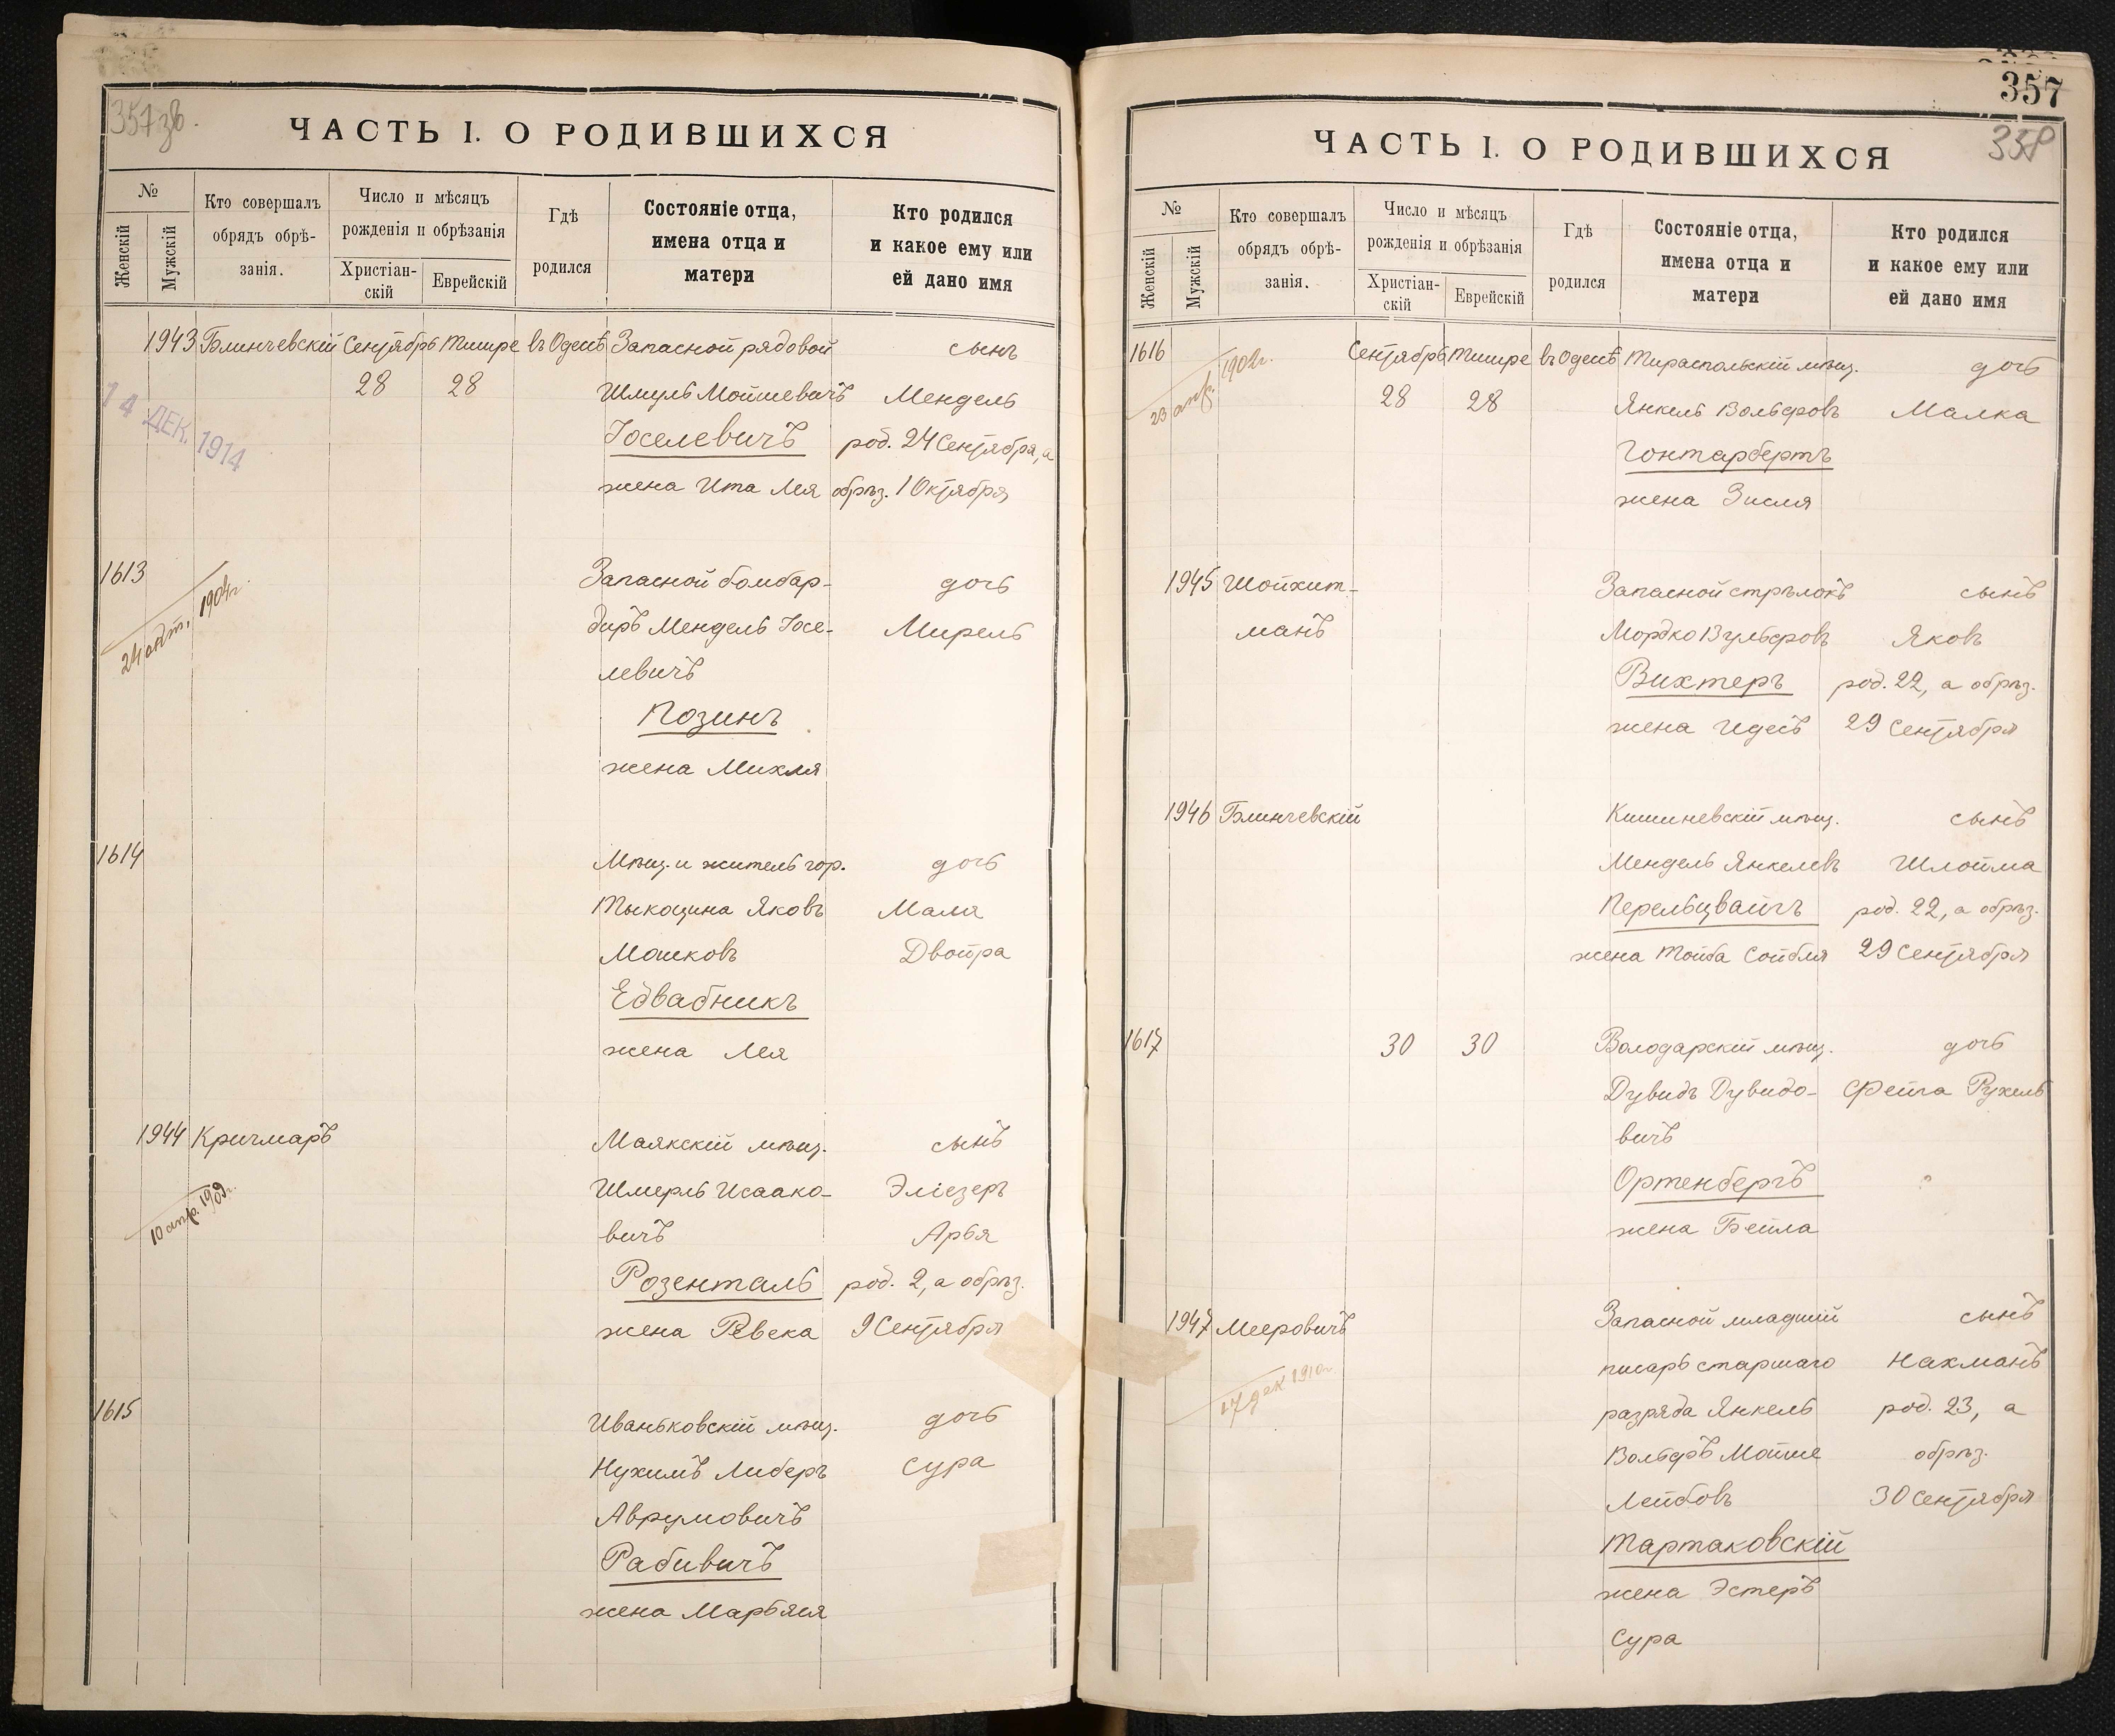 357 зв.
ЧАСТЬ I. О РОДИВШИХСЯ
№
Женскій
Мужскій
Кто совершалъ
обрядъ обрѣ-
занія.
Число и мѣсяцъ
рожденія и обрѣзанія
Христіан-
скій
Еврейскій
Гдѣ
родился
Состояніе отца,
имена отца и
матери
Кто родился
и какое ему или
ей дано имя
1943 Блинчевскій Сентябрь Тишре въ Одессѣ Запасной рядовой сынъ
28 28 Шмуль Мойшевичъ Мендель
14 ДЕК. 1914
Іоселевичъ род. 24 Сентября, а
жена Ита Лея обрѣз. 1 Октября
1613 Запасной бомбар- дочь
24 окт. 1904 г.
диръ Мендель Іосе- Мирель
левичъ
Позинъ
жена Михля
1614 Мѣщ. и житель гор. дочь
Тыкоцина Яковъ Маля
Мошковъ Двойра
Едвабникъ
жена Лея
1944 Кричмаръ Маякскій мѣщ. сынъ
10 апр. 1909 г.
Шмерль Исаако- Эліезеръ
вичъ Арья
Розенталь род. 2, а обрѣз.
жена Ревека 9 Сентября
1615 Иваньковскій мѣщ. дочь
Нухимъ Либеръ Сура
Аврумовичъ
Рабивичъ
жена Марьяся
357
358
ЧАСТЬ I. О РОДИВШИХСЯ
№
Женскій
Мужскій
Кто совершалъ
обрядъ обрѣ-
занія.
Число и мѣсяцъ
рожденія и обрѣзанія
Христіан-
скій
Еврейскій
Гдѣ
родился
Состояніе отца,
имена отца и
матери
Кто родился
и какое ему или
ей дано имя
1616 Сентябрь Тишре въ Одессѣ Тираспольскій мѣщ. дочь
23 апр.
28 28 Янкель Вольфовъ Малка
Гонтарбертъ
жена Зисля
1945 Шойхит- Запасной стрѣлокъ сынъ
манъ Мордко Вульфовъ Яковъ
Вихтеръ род. 22, а обрѣз.
жена Идесъ 29 Сентября
1946 Блинчевскій Кишиневскій мѣщ. сынъ
Мендель Янкелевъ Шлойма
Перельцвайгъ род. 22, а обрѣз.
жена Тойба Сойбля 29 Сентября
1617 30 30 Володарскій мѣщ. дочь
Дувидъ Дувидо- Фейга Рухель
вичъ
Ортенбергъ
жена Бейла
1947 Мееровичъ Запасной младшій сынъ
17 дек 1910 г.
писарь старшаго Нахманъ
разряда Янкель род. 23, а
Вольфъ Мойше обрѣз.
Лейбовъ 30 Сентября
Тартаковскій
жена Эстеръ
Сура